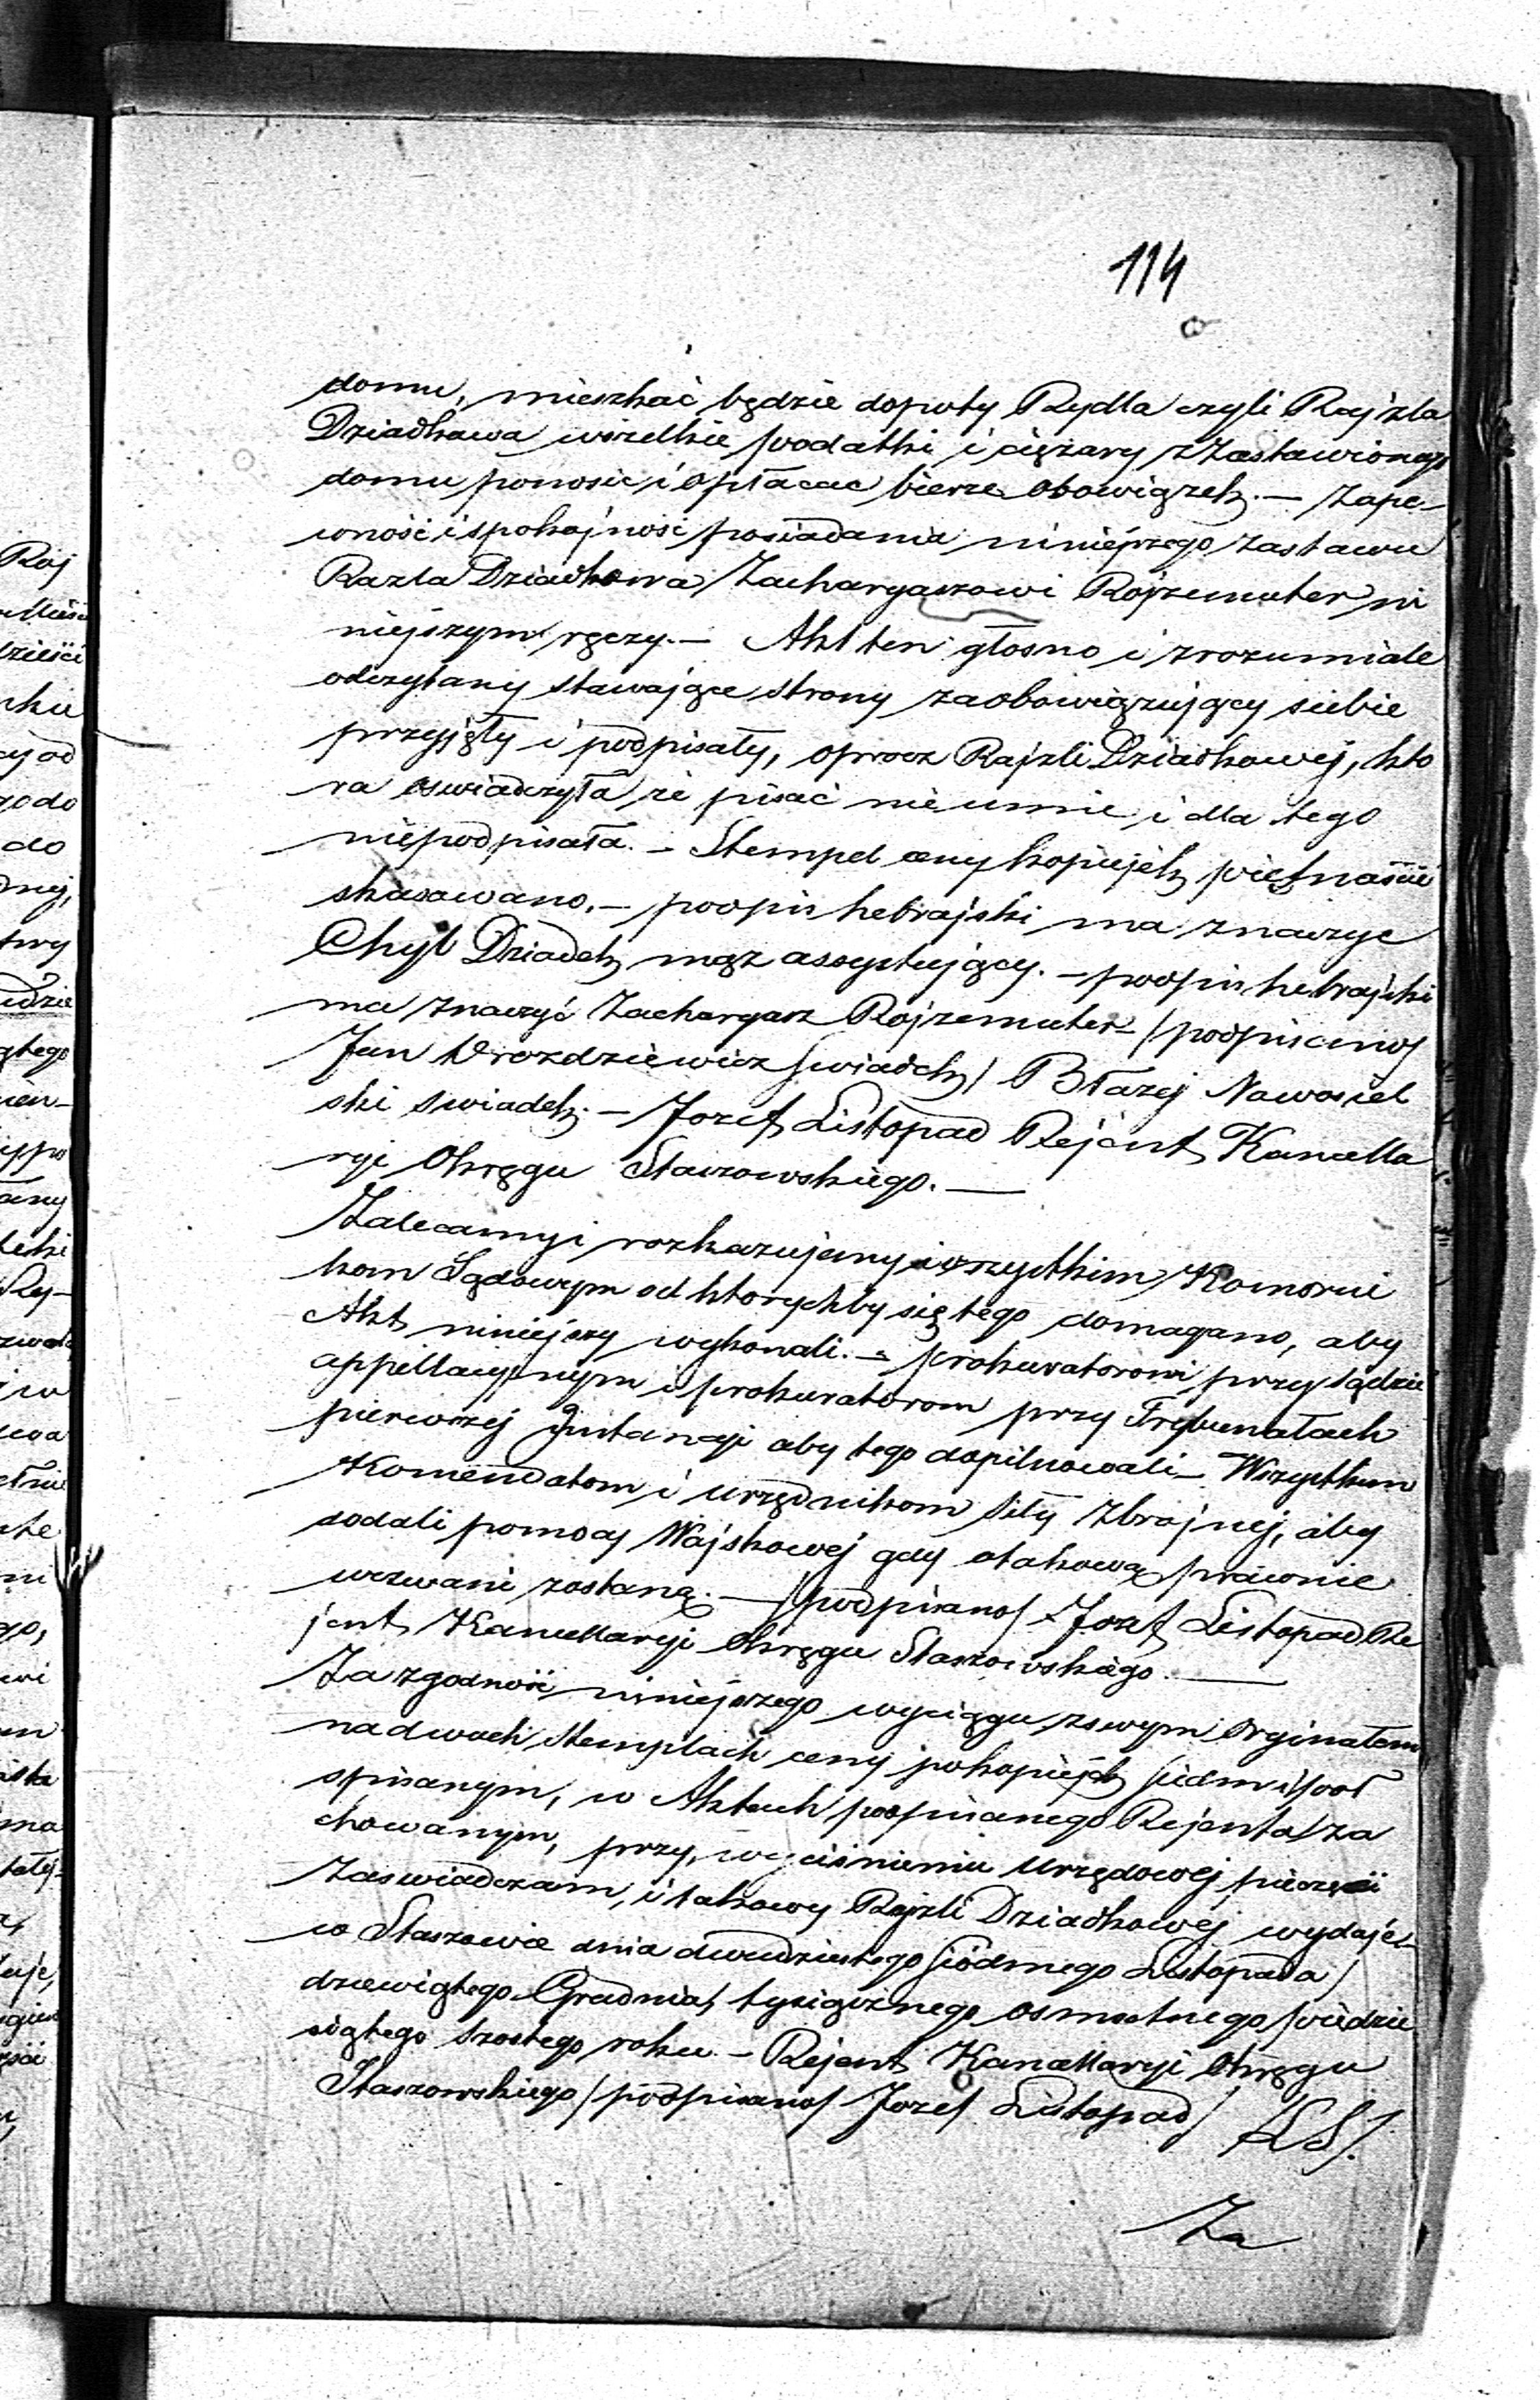 114
domu, mieszkać będzie dopoty Rydla czyli Rajzla
Dziadkowa wszelkie podatki i ciężary z zastawionego
domu ponosić i opłacać bierze obowiązek. — Zape-
wność i spokojność posiadania niniejszego zastawu
Razla Dziadkowa Zacharyaszowi Rojzemuter ni
niejszym ręczy. — Akt ten głosno i zrozumiale
odczytany stawające strony za obowięzujący siebie
przyjęły i podpisały, oprocz Rajzli Dziadkowej, kto
ra oswiadczyła że pisać nie umie i dla tego
niepodpisała. — Stempel ceny kopiejek pietnaście
skasowano. — podpis hebrajski ma znaczyc
Chyl Dziadek mąż assystujący. — podpis hebrajski
ma znaczyć Zacharyasz Rojzemuter / podpisano /
Jan Drozdziewicz swiadek / Błazej Nawosiel
ski swiadek. — Jozef Listopad Rejent Kancella
ryi Okręgu Staszowskiego. —
Zalecamy i rozkazujemy wszystkim Komorni
kom Sądowym od ktorychby się tego domagano, aby
Akt niniejszy wykonali. — prokuratorowi przy Sądzie
appellacyjnym i prokuratorom przy Trybunałach
pierwszej Instancyi aby tego dopilnowali — Wszystkim
Komendatom i urzędnikom siły Zbrojnej, aby
dodali pomocy Wojskowej gdy o takową prawnie
wezwani zostaną. — / podpisano / Jozef Listopad Re
jent Kancellaryi Okręgu Staszowskiego. —
Za zgodność niniejszego wyciągu z swym Orginałem
na dwoch stemplach ceny po kopiejek siedm i poł
spisanym, w Aktach podpisanego Rejenta za
chowanym, przy wyciśnieniu Urzędowej pieczęci
Zaswiadczam, i takowy Rajzli Dziadkowej wydaję
w Staszowie dnia dwudziestego siódmego Listopada /
dziewiątego Grudnia tysiącznego osmsetnego piędzie
siątego szostego roku. — Rejent Kancellaryi Okręgu
Staszowskiego / podpisano / Jozef Listopad / LS /.
Za